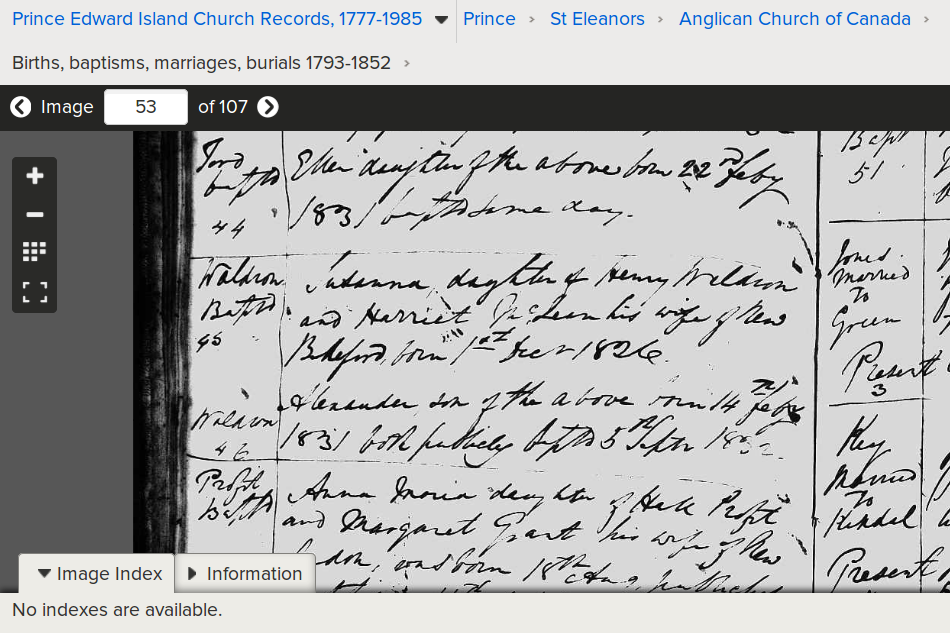 Prince Edward Island Church Records, 1777-1985 Prince St Eleanors Anglican Church of Canada
Births, baptisms, marriages, burials 1793-1852
Image 53 of 107
Ford
baptd
44
Ellen daughter of the above born 22nd Feby
1831 baptd same day.
Waldron
Baptd
45
Susanna, daughter of Henry Weldron
and Harriet McLean his wife of New
Bideford, born 1st Decr 1826
Waldron
46
Alexander, son of the above born 14th Feby
1831 both publicly baptd 5th Septr
Profit
Baptd
Anna Maria daughter of Profit
and Margaret Grant his wife of New
was born 18th Aug,
Bapt
51
Jones
Married
To
Green
Present
3
Key
Married
To
Kendal
Present
Image Index Information
No indexes are available.